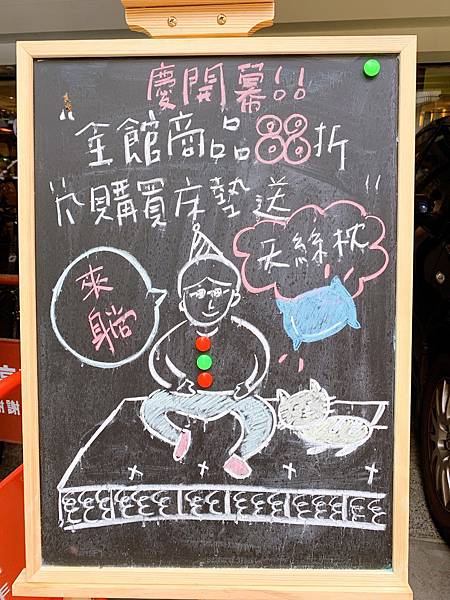 慶開幕!!
"全館商品88折
只購買床墊送"
天絲枕
來躺